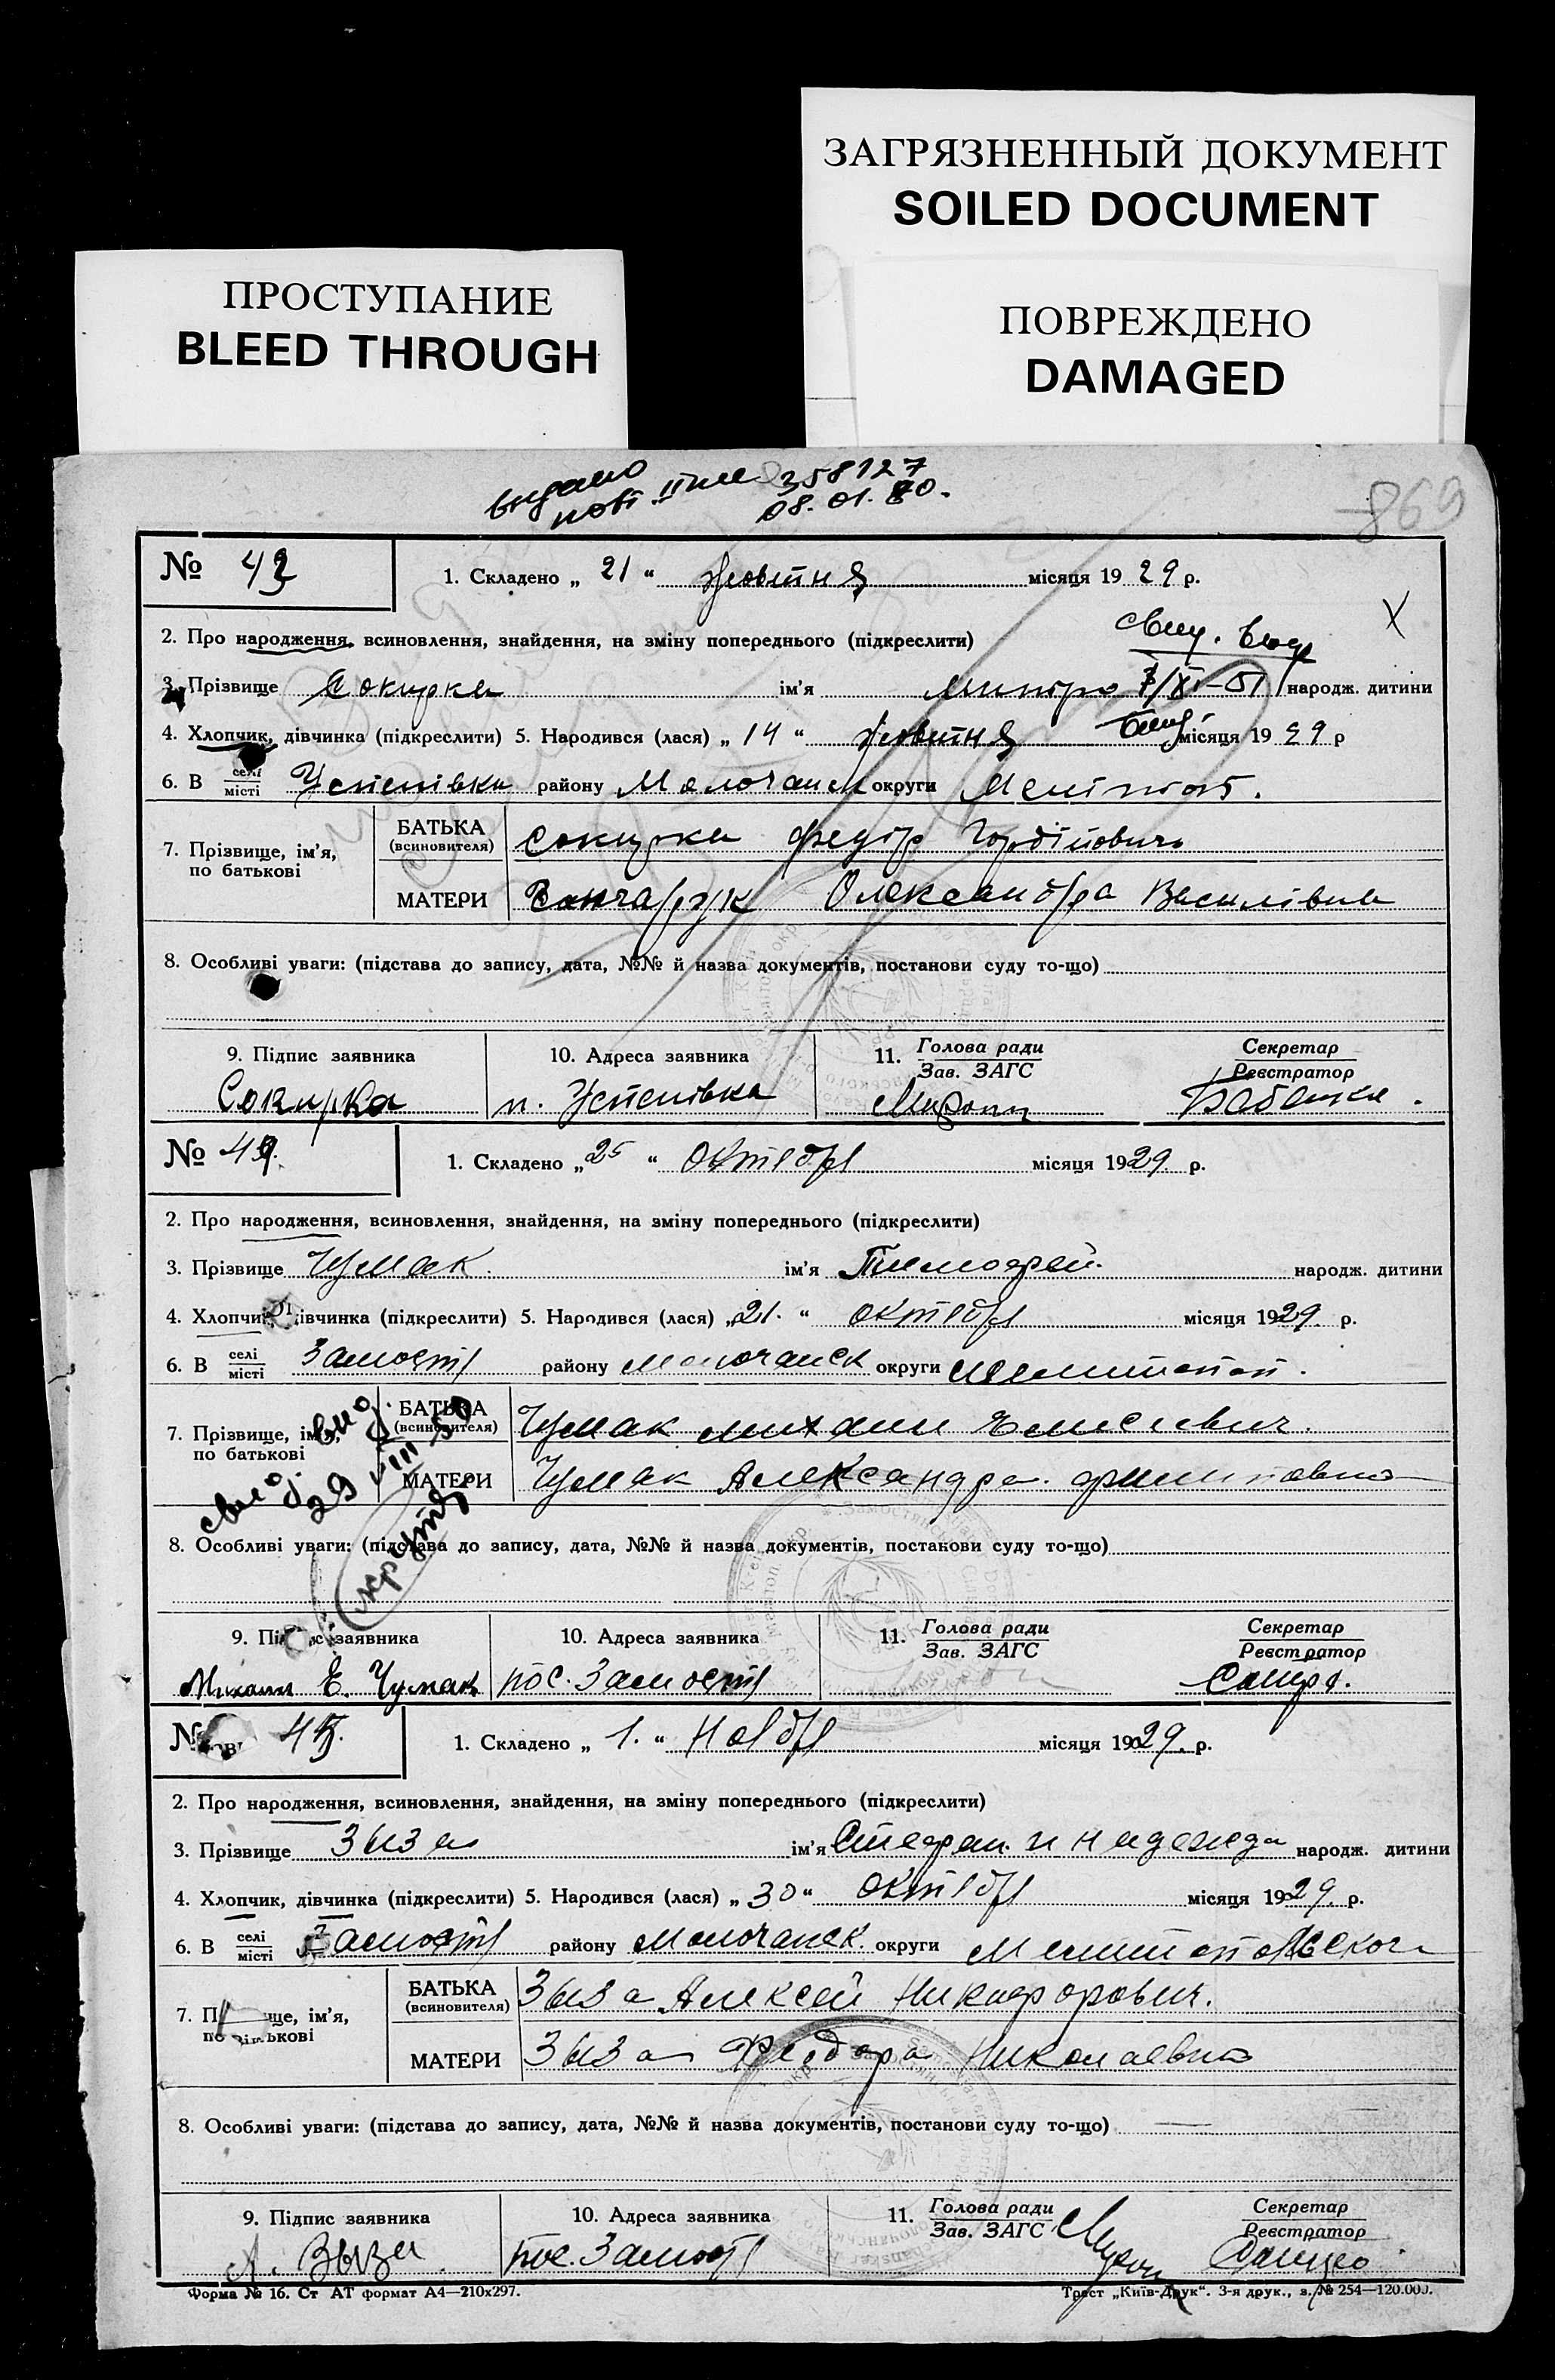 ЗАГРЯЗНЕННЫЙ ДОКУМЕНТ
SOILED DOCUMENT
ПРОСТУПАНИЕ
BLEED THROUGH
ПОВРЕЖДЕНО
DAMAGED
видано 358127
08.01.80.
869
№ 43 1. Складено „ 21 “ жовтня місяця 1929 р.
2. Про народження, всиновлення, знайдення, на зміну попереднього (підкреслити)
3. Прізвище Сокирка ім'я Митро народж. дитини
4. Хлопчик, дівчинка (підкреслити) 5. Народився (лася) „ 14 “ жовтня місяця 1929 р
6. В селі/місті Успенівка району Молочанськ округи Меліт.
7. Прізвище, ім'я, по батькові
БАТЬКА (всиновителя) Сокирка Федір
МАТЕРИ Гончарук Олександра Василівна
8. Особливі уваги: (підстава до запису, дата, №№ й назва документів, постанови суду то-що)
9. Підпис заявника 10. Адреса заявника 11. Голова ради/Зав. ЗАГС Секретар/Реєстратор
Сокирка п. Успенівка
№ 44. 1. Складено „ 25 “ октября місяця 1929. р.
2. Про народження, всиновлення, знайдення, на зміну попереднього (підкреслити)
3. Прізвище Чумак. ім'я Тимофей. народж. дитини
4. Хлопчик, дівчинка (підкреслити) 5. Народився (лася) „ 21. “ октября місяця 1929. р.
6. В селі/місті Замостя району Молочанск округи Мелитопол.
7. Прізвище, ім'я, по батькові
БАТЬКА (всиновителя) Чумак Михаил Елисеевич.
МАТЕРИ Чумак Александра Филиповна
29 VIII 50
8. Особливі уваги: (підстава до запису, дата, №№ й назва документів, постанови суду то-що)
9. Підпис заявника 10. Адреса заявника 11. Голова ради/Зав. ЗАГС Секретар/Реєстратор
Михаил Е. Чумак пос. Замостя
№ 45. 1. Складено „ 1. “ Ноября місяця 1929. р.
2. Про народження, всиновлення, знайдення, на зміну попереднього (підкреслити)
3. Прізвище Зыза ім'я Стефан и Надежда народж. дитини
4. Хлопчик, дівчинка (підкреслити) 5. Народився (лася) „ 30 “ октября місяця 1929. р.
6. В селі/місті Замостя району Молочанск. округи Мелитопольского
7. Прізвище, ім'я, по батькові
БАТЬКА (всиновителя) Зыза Алексей Никифорович.
МАТЕРИ Зыза Федора Николаевна
8. Особливі уваги: (підстава до запису, дата, №№ й назва документів, постанови суду то-що)
9. Підпис заявника 10. Адреса заявника 11. Голова ради/Зав. ЗАГС Секретар/Реєстратор
А. Зыза пос. Замостя
Форма № 16. Ст АТ формат А4—210x297. Трест „Київ-Друк“. 3-я друк., з. № 254—120.000.